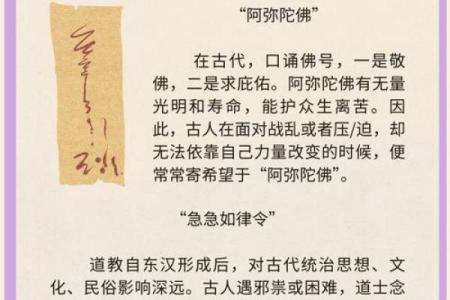 “阿弥陀佛”
在古代，口诵佛号，一是敬
佛，二是求庇佑。阿弥陀佛有无量
光明和寿命，能护众生离苦。因
此，古人在面对战乱或者压/迫，却
无法依靠自己力量改变的时候，便
常常寄希望于“阿弥陀佛”。
“急急如律令”
道教自东汉形成后，对古代统治思想、文
化、民俗影响深远。古人遇邪祟或困难，道士念